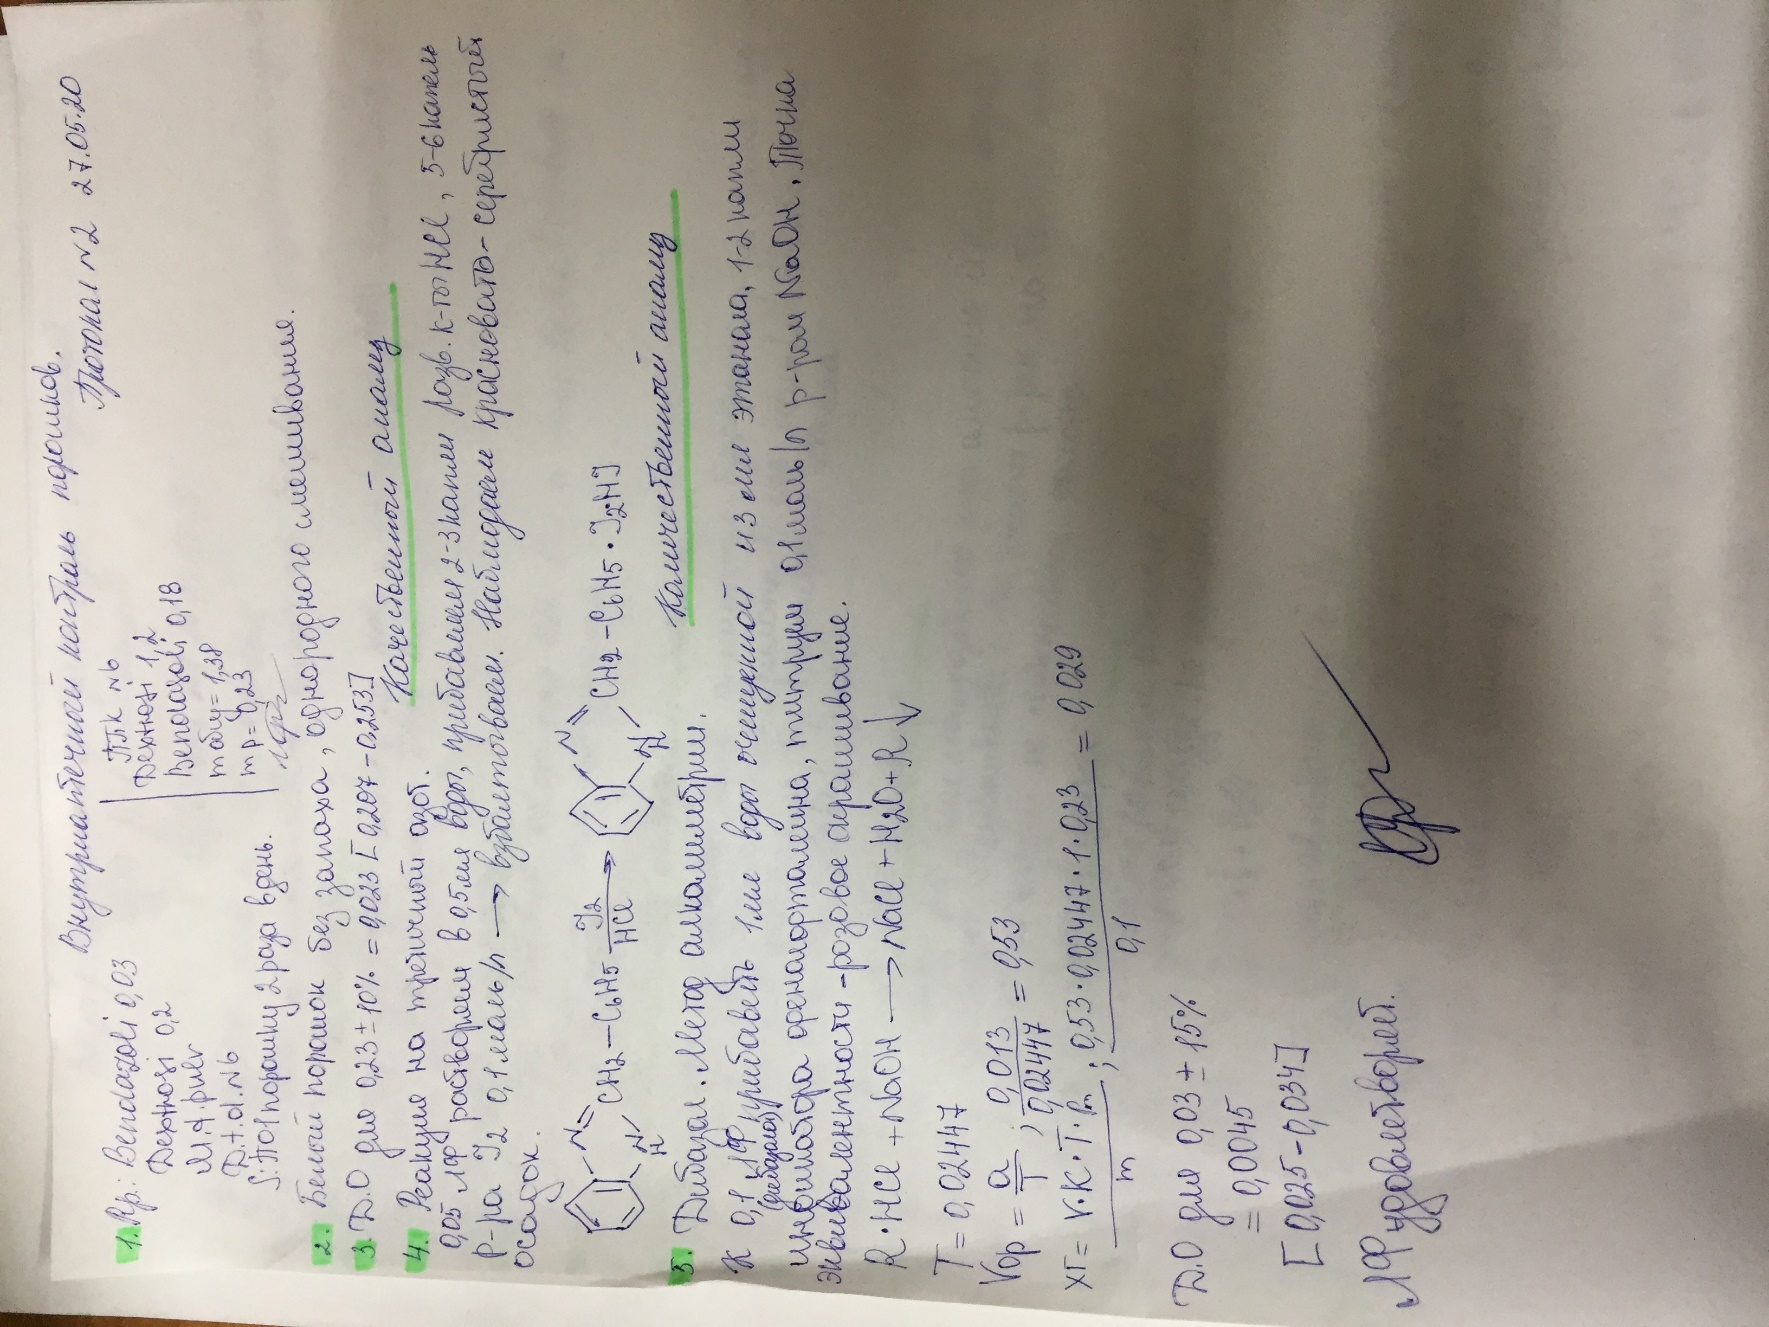 Внутриаптечный контроль порошков.
Протокол №2 27.05.20
1. Rp: Bendazoli 0,03
Dextrosi 0,2
M.f. pulv
D.t.d. №6
S: По 1 порошку 2 раза в день.
ППК №6
Dextrosi 1,2
Bendazoli 0,18
mобщ = 1,38
mр = 0,23
2. Белый порошок без запаха, однородного смешивания.
3. Д.О для 0,23 ± 10% = 0,023 [0,207 - 0,253]
Качественный анализ
4. Реакция на третичный азот.
0,05 ЛФ растворяем в 0,5 мл воды, прибавляем 2-3 капли разв. к-ты HCl, 5-6 капель
р-ра J2 0,1 моль/л → взбалтываем. Наблюдаем красновато-серебристый
осадок.
N N H CH2 — C6H5 J2 HCl → N N H CH2 - C6H5 · J2HJ
Количественный анализ
5. Дибазол. Метод алкалиметрии.
К 0,1 ЛФ (дибазола) прибавить 1 мл воды очищенной и 3 мл этанола, 1-2 капли
индикатора фенолфталеина, титруем 0,1 моль/л р-ром NaOH. Точка
эквивалентности - розовое окрашивание.
R·HCl + NaOH → NaCl + H2O + R↓
T = 0,02447
Vор = a / T ; 0,013 / 0,02447 = 0,53
Xг = V·K·T·Pm / m ; 0,53·0,02447·1·0,23 / 0,1 = 0,029
Д.О для 0,03 ± 15%
= 0,0045
[0,025 - 0,034]
ЛФ удовлетворяет.